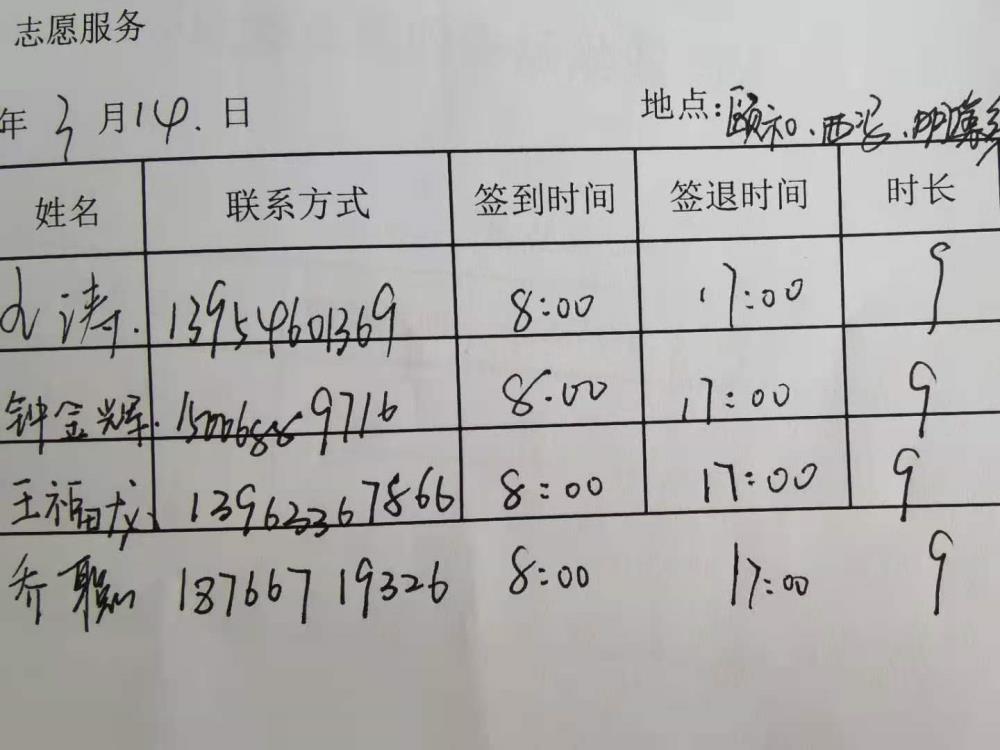 志愿服务
年 3 月 14. 日 地点:颐和、西
姓名 联系方式 签到时间 签退时间 时长
涛. 13954601369 8:00 17:00 9
钟金辉. 15006889716 8:00 17:00 9
王福 13963367866 8:00 17:00 9
乔聪 18766719326 8:00 17:00 9